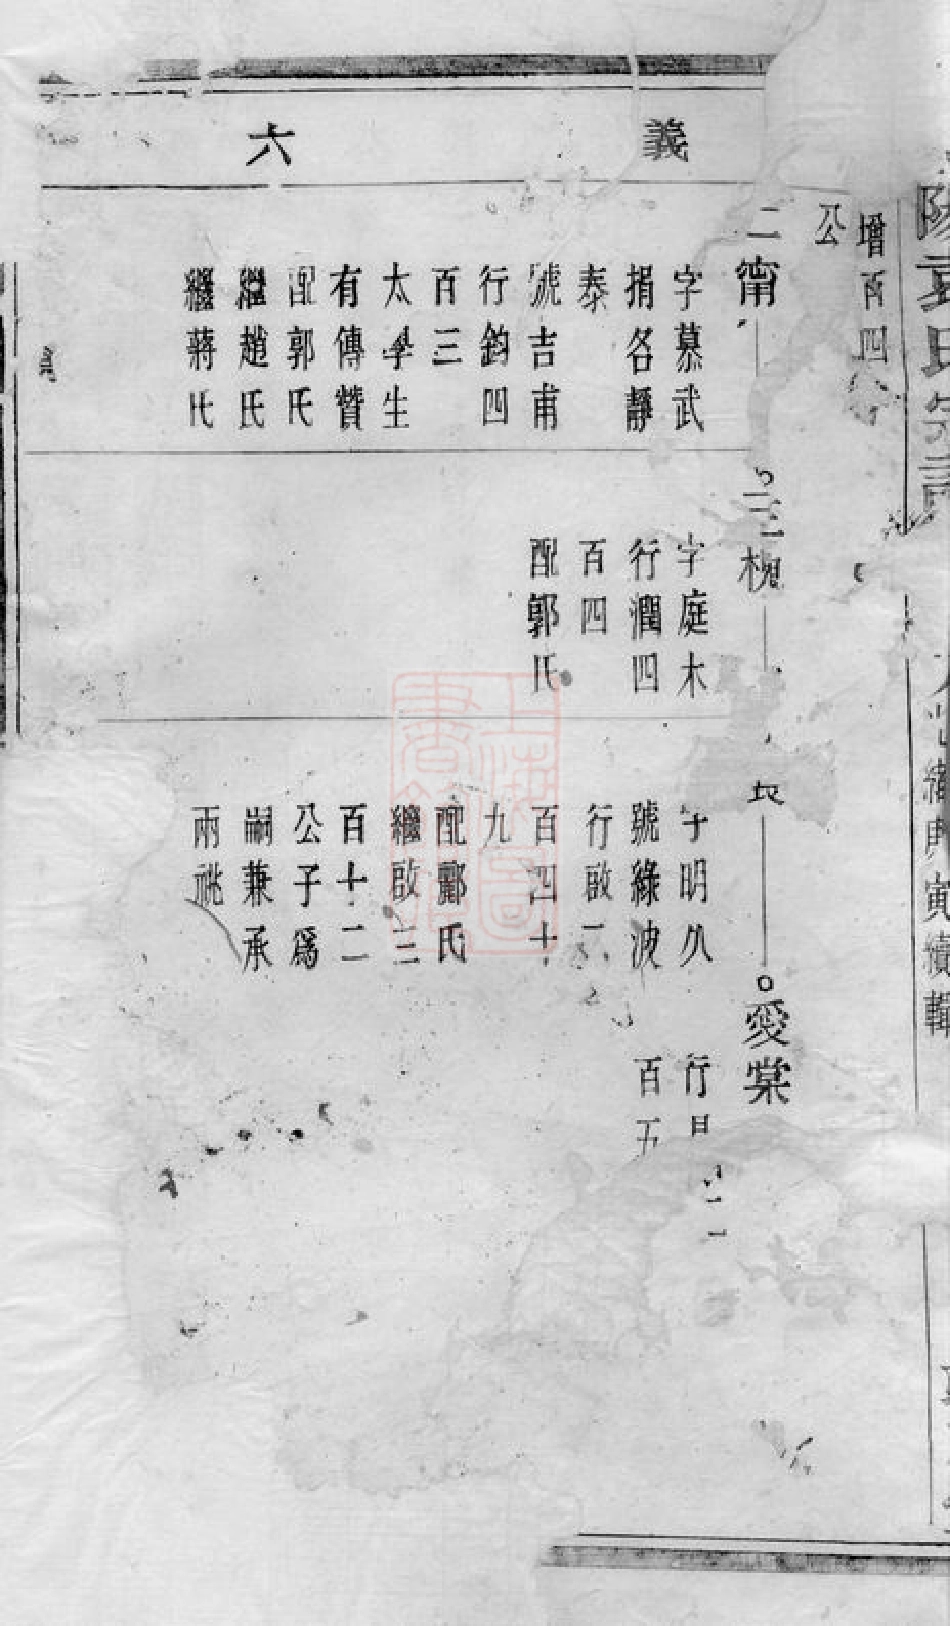 義
六
增百四
公
二甯
字慕武
捐名靜
泰
號吉甫
行鈞四
百三
太學生
有傳贊
配郭氏
繼趙氏
繼蔣氏
槐
字庭木
行潤四
百四
配郭氏
字明久
號綠波
行啟
百四十
九
配酈氏
繼啟三
百十二
公子爲
嗣兼承
兩祧
愛棠
行
百五
氏宗譜
光緒庚寅續輯
上海圖書館藏